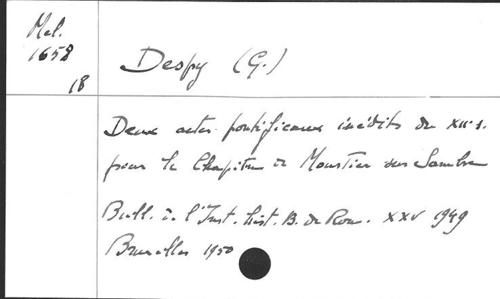 Mel.
1658
18
Despy (G.)
Deux actes pontificaux inédits du XIIe s.
pour le Chapitre de Moustier sur Sambre
Bull. de l'Inst. hist. B. de Rom. XXV 1949
Bruxelles 1950